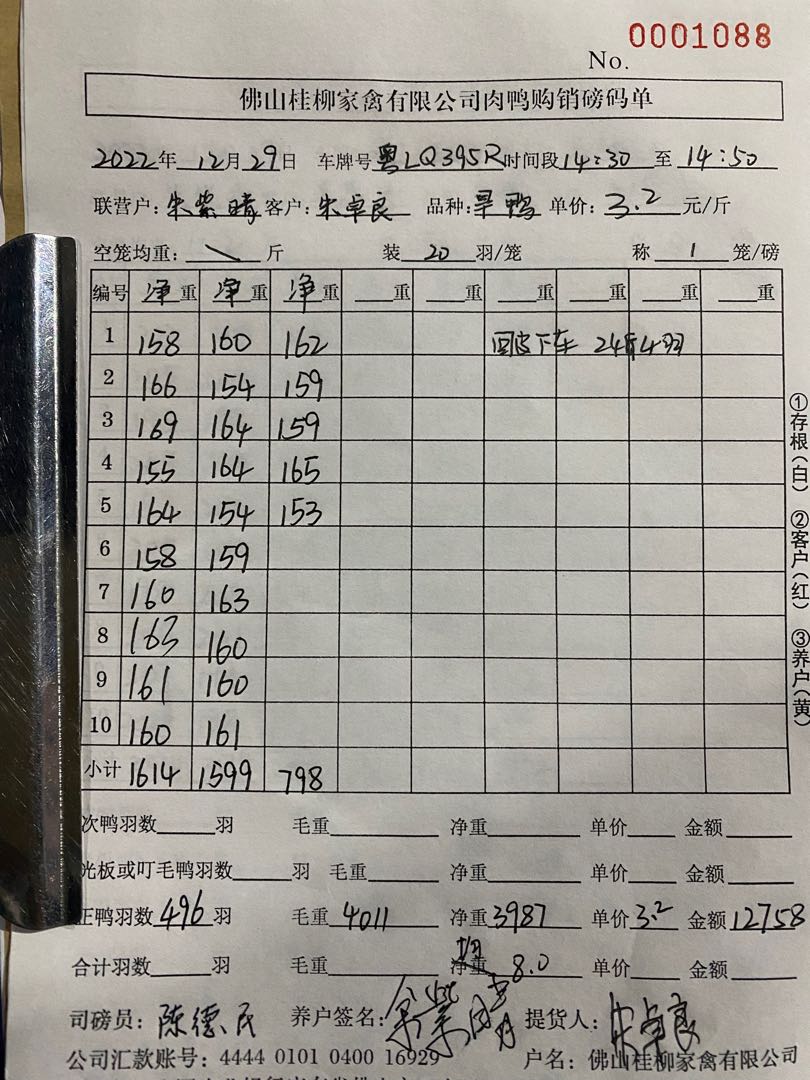 No. 0001088
佛山桂柳家禽有限公司肉鸭购销磅码单
2022年 12月29日 车牌号粤LQ395R时间段14:30 至 14:50
联营户:朱紫晴 客户:朱卓良 品种:旱鸭 单价:3.2 元/斤
空笼均重: 斤 装 20 羽/笼 称 1 笼/磅
编号 净重 净重 净重 重 重 重 重 重 重
1 158 160 162 回皮下车 24斤4羽
2 166 154 159
3 169 164 159
4 155 164 165
5 164 154 153
6 158 159
7 160 163
8 163 160
9 161 160
10 160 161
小计 1614 1599 798
次鸭羽数 羽 毛重 净重 单价 金额
光板或叮毛鸭羽数 羽 毛重 净重 单价 金额
正鸭羽数 496 羽 毛重 4011 净重3987 单价3.2 金额12758
合计羽数 羽 毛重 净重 8.0 单价 金额
司磅员: 陈德民 养户签名: 提货人: 朱卓良
公司汇款账号: 4444 0101 0400 16929 户名: 佛山桂柳家禽有限公司
①存根(白) ②客户(红) ③养户(黄)